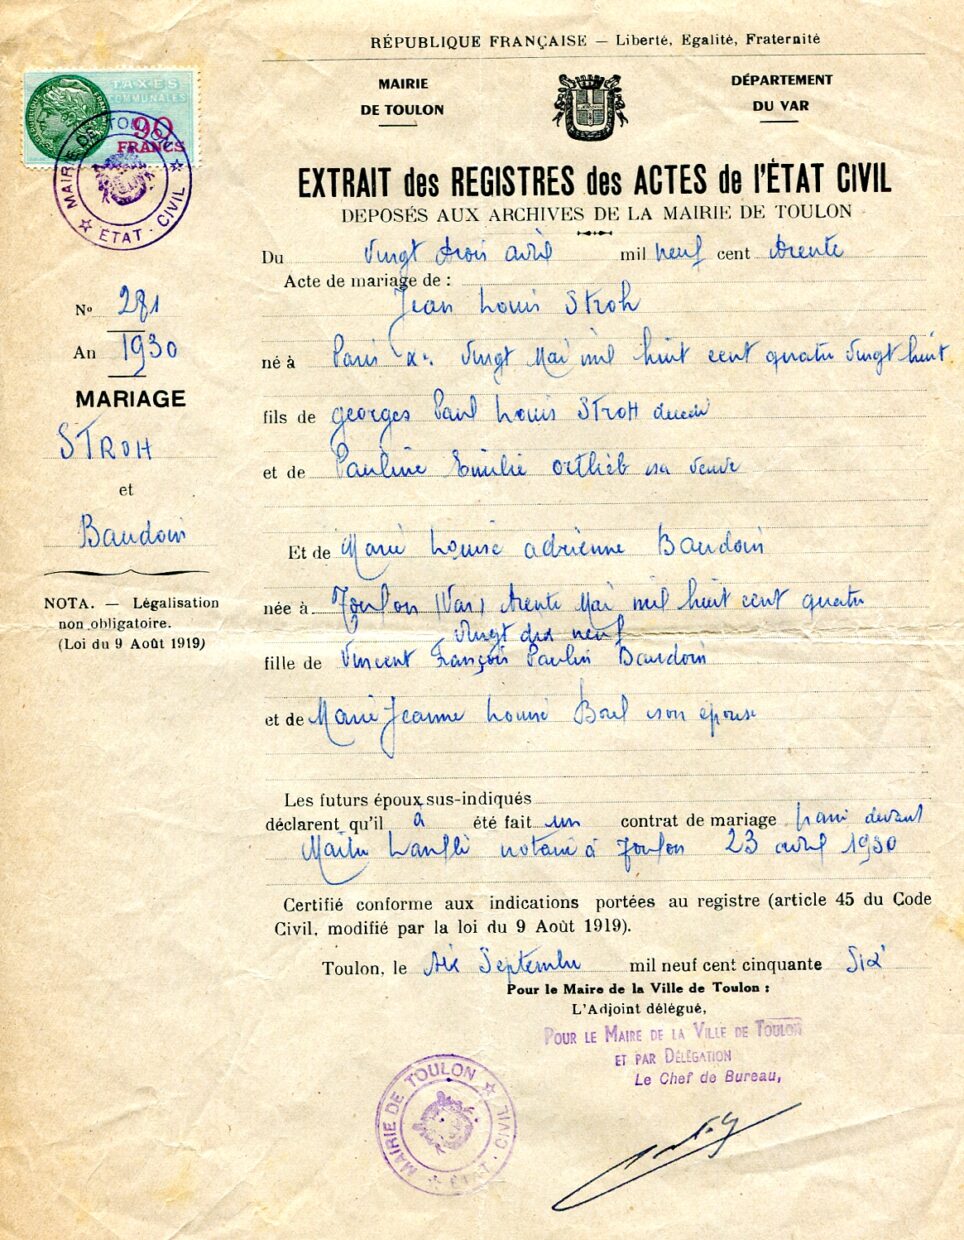 RÉPUBLIQUE FRANÇAISE — Liberté, Egalité, Fraternité
MAIRIE
DE TOULON
DÉPARTEMENT
DU VAR
TAXES
COMMUNALES
90
FRANCS
MAIRIE DE TOULON
ÉTAT - CIVIL
EXTRAIT des REGISTRES des ACTES de l'ÉTAT CIVIL
DEPOSÉS AUX ARCHIVES DE LA MAIRIE DE TOULON
Du Vingt trois avril mil neuf cent trente
Acte de mariage de :
Jean Louis Stroh
N° 281
An 1930
MARIAGE
STROH
et
Baudoin
NOTA. — Légalisation
non obligatoire.
(Loi du 9 Août 1919)
né à Paris Vingt Mai mil huit cent quatre vingt huit
fils de georges Paul Louis STROH décédé
et de Pauline Emilie Ortlieb sa veuve
Et de Marie Louise adrienne Baudoin
née à Toulon (Var) trente Mai mil huit cent quatre
vingt dix neuf
fille de Vincent François Paulin Baudoin
et de Marie Jeanne Louise son épouse
Les futurs époux sus-indiqués
déclarent qu'il a été fait un contrat de mariage devant
Maître notaire à Toulon 23 avril 1930
Certifié conforme aux indications portées au registre (article 45 du Code
Civil, modifié par la loi du 9 Août 1919).
Toulon, le dix Septembre mil neuf cent cinquante Six
Pour le Maire de la Ville de Toulon :
L'Adjoint délégué,
POUR LE MAIRE DE LA VILLE DE TOULON
ET PAR DÉLÉGATION
Le Chef de Bureau,
MAIRIE DE TOULON
ÉTAT - CIVIL